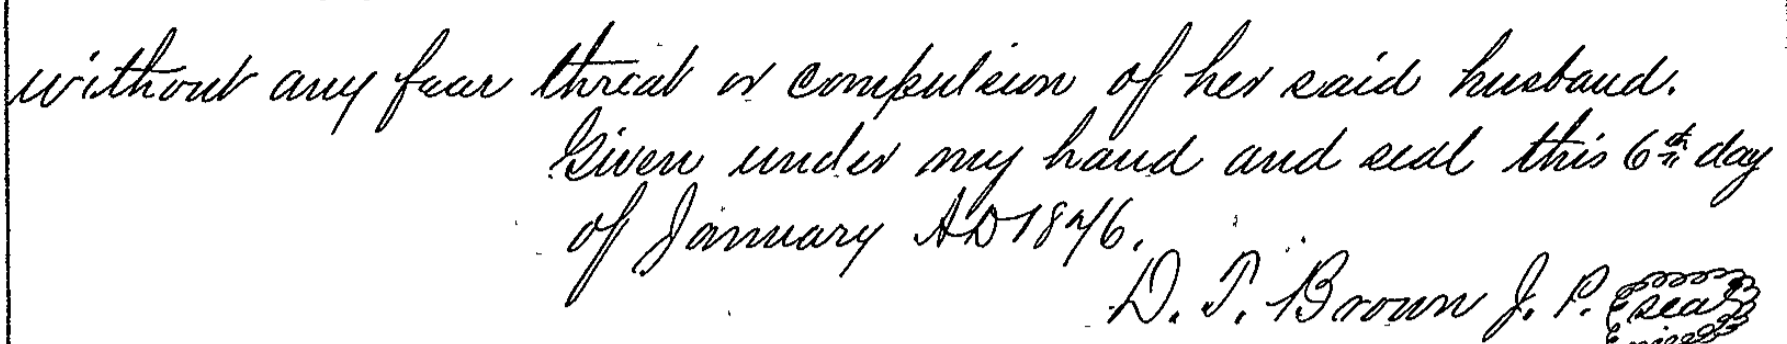 without any fear threat or compulsion of her said husband.
Given under my hand and seal this 6th day
of January AD 1846.
D. T. Brown J. P. seal